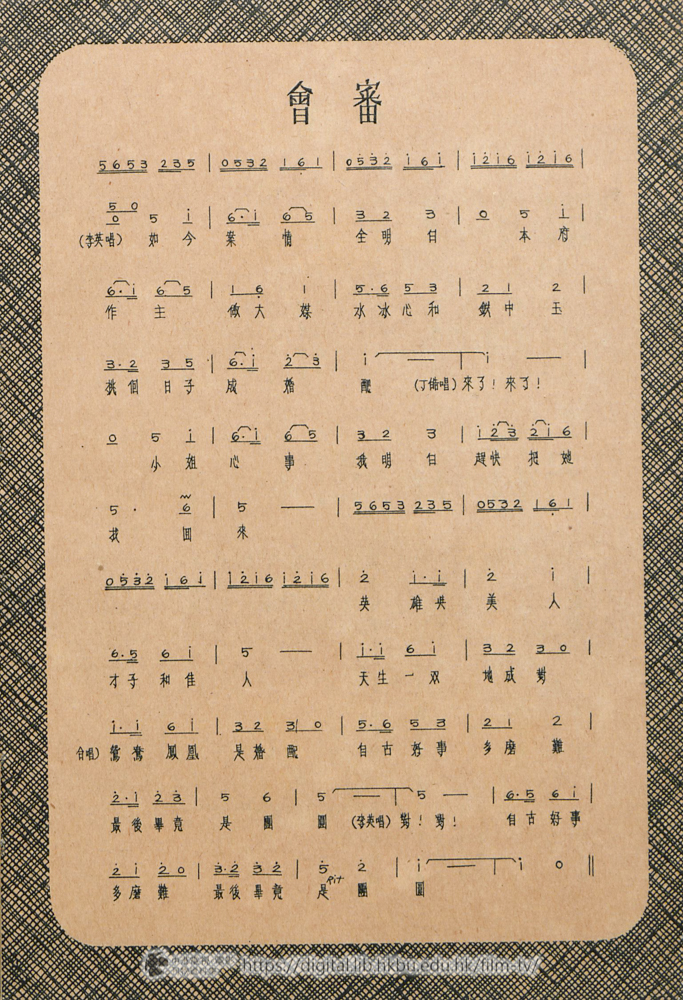 會審
5653 235 | 0532 161 | 0532 161 | 1216 1216 |
50
0 5 1 | 6·1 65 | 32 3 | 0 5 1 |
(李英唱) 如今 案情 全明白 本府
6·1 65 | 16 1 | 5·6 53 | 21 2 |
作主 做大媒 水冰心和 鐵中玉
3·2 35 | 6·1 23 | 1 — | 1 — |
挑個日子成婚配 (丁倫唱) 來了！來了！
0 5 1 | 6·1 65 | 32 3 | 123 216 |
小姐心事 我明白 趕快把她
5· 6 | 5 — | 5653 235 | 0532 161 |
找回來
0532 161 | 1216 1216 | 2 1·1 | 2 1 |
英雄共美人
6·5 61 | 5 — | 1·1 61 | 32 30 |
才子和佳人 天生一双 地成對
1·1 61 | 32 3 0 | 5·6 53 | 21 2 |
合唱) 鴛鴦鳳凰 是婚配 自古好事 多磨難
2·1 23 | 5 6 | 5 — | 5 — | 6·5 61 |
最後畢竟 是團圓 (李英唱) 對！對！ 自古好事
21 20 | 3·2 32 | 5 2 | 1 — | 1 0 ||
rit
多磨難 最後畢竟 是團圓
https://digital.lib.hkbu.edu.hk/film-tv/